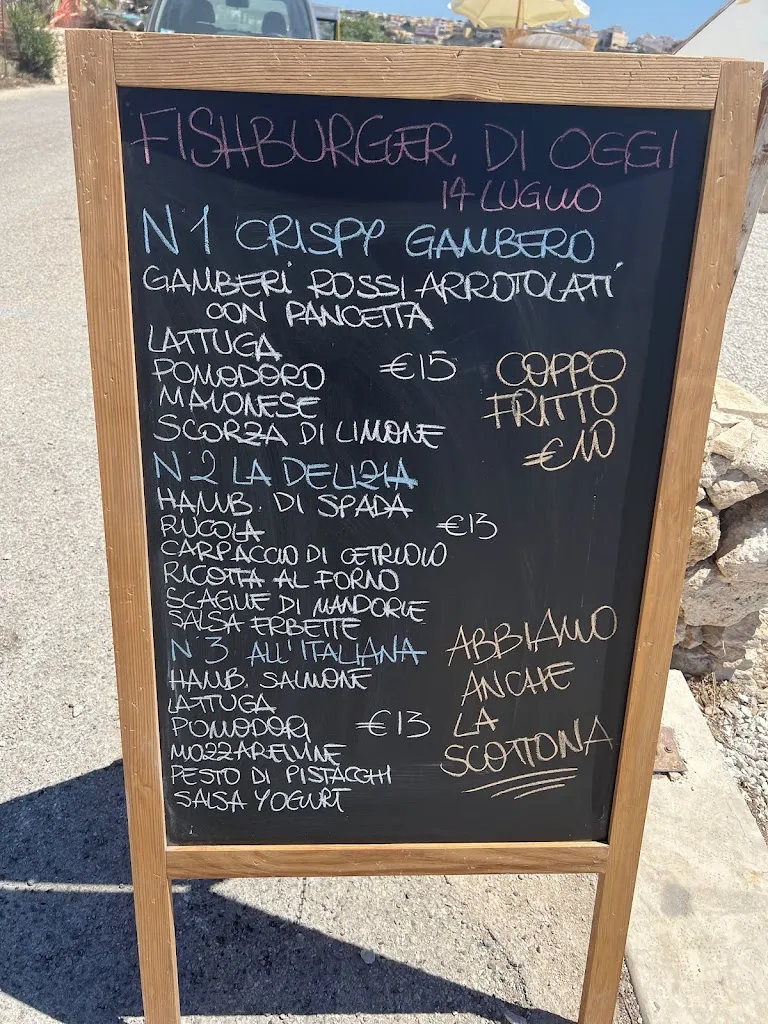 FISHBURGER DI OGGI
14 LUGLIO
N 1 CRISPY GAMBERO
GAMBERI ROSSI ARROTOLATI
CON PANCETTA
LATTUGA
POMODORO €15
MAIONESE
SCORZA DI LIMONE
COPPO
FRITTO
€10
N 2 LA DELIZIA
HAMB. DI SPADA
RUCOLA €13
CARPACCIO DI CETRIOLO
RICOTTA AL FORNO
SCAGLIE DI MANDORLE
SALSA ERBETTE
N 3 ALL'ITALIANA
HAMB. SALMONE
LATTUGA
POMODORI €13
MOZZARELLINE
PESTO DI PISTACCHI
SALSA YOGURT
ABBIAMO
ANCHE
LA
SCOTTONA